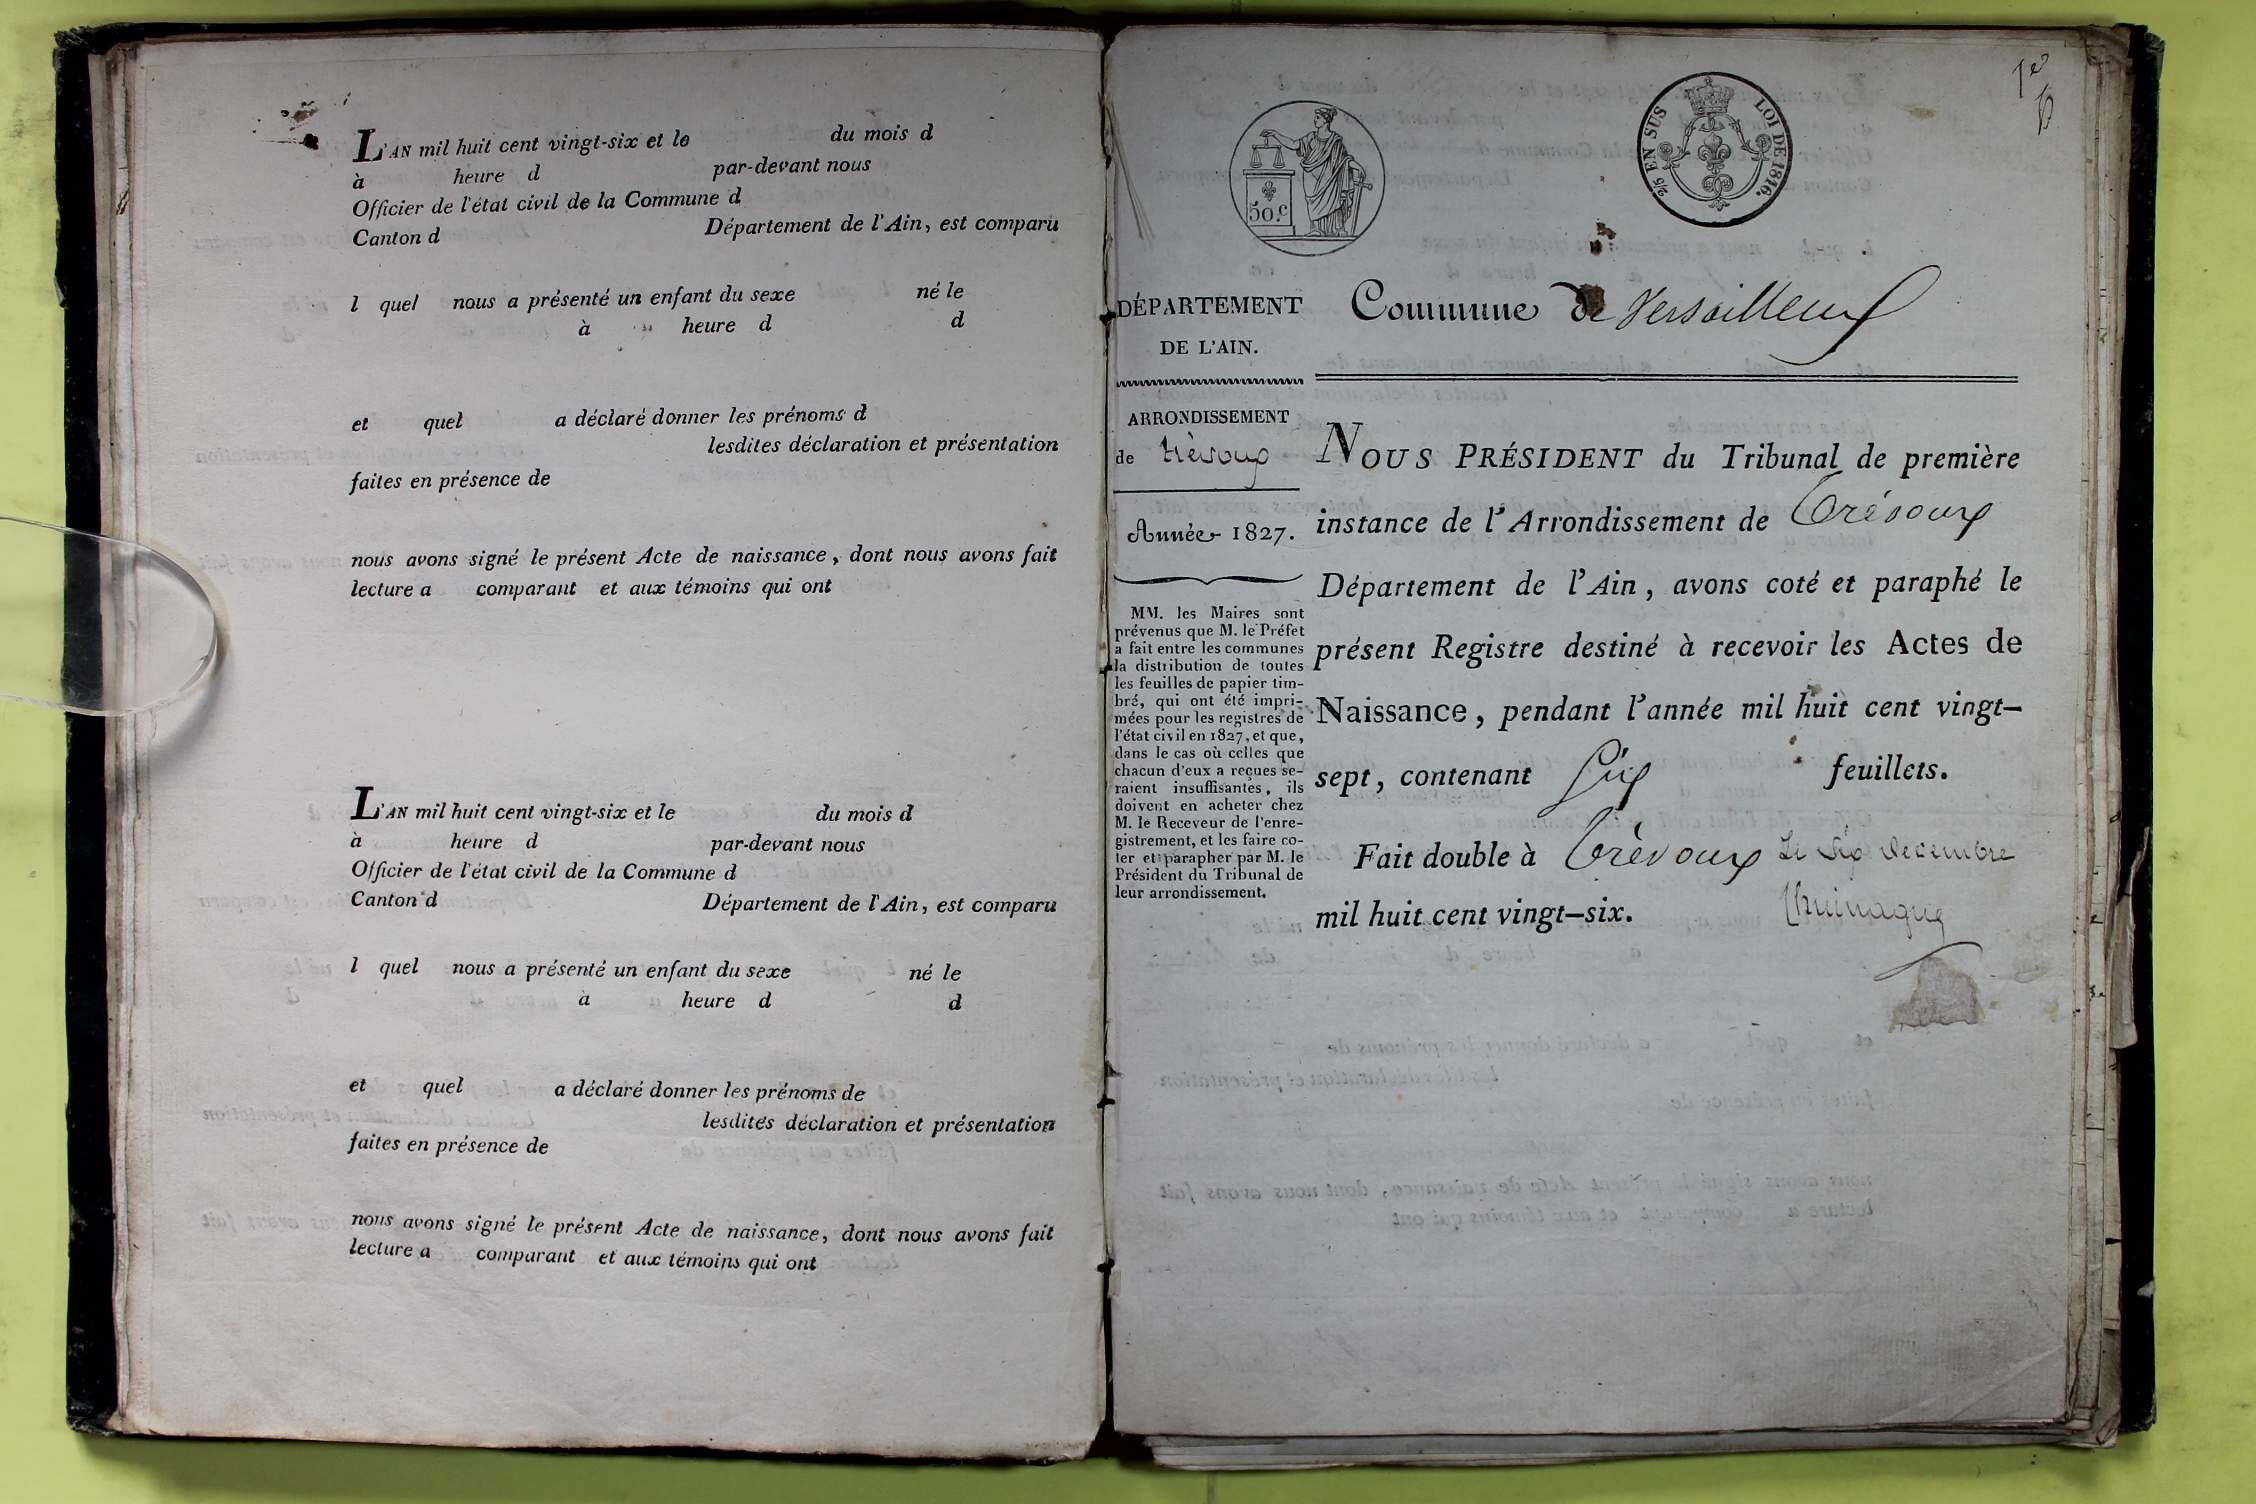 L'AN mil huit cent vingt-six et le du mois d
à heure d par-devant nous
Officier de l'état civil de la Commune d
Canton d Département de l'Ain, est comparu
l quel nous a présenté un enfant du sexe né le
à heure d d
et quel a déclaré donner les prénoms d
lesdites déclaration et présentation
faites en présence de
nous avons signé le présent Acte de naissance, dont nous avons fait
lecture a comparant et aux témoins qui ont
L'AN mil huit cent vingt-six et le du mois d
à heure d par-devant nous
Officier de l'état civil de la Commune d
Canton d Département de l'Ain, est comparu
l quel nous a présenté un enfant du sexe né le
à heure d d
et quel a déclaré donner les prénoms de
lesdites déclaration et présentation
faites en présence de
nous avons signé le présent Acte de naissance, dont nous avons fait
lecture a comparant et aux témoins qui ont
1er
50.c
2/5 EN SUS LOI DE 1816.
DÉPARTEMENT
DE L'AIN.
ARRONDISSEMENT
de trévoux
Année 1827.
MM. les Maires sont
prévenus que M. le Préfet
a fait entre les communes
la distribution de toutes
les feuilles de papier tim-
bré, qui ont été impri-
mées pour les registres de
l'état civil en 1827, et que,
dans le cas où celles que
chacun d'eux a reçues se-
raient insuffisantes, ils
doivent en acheter chez
M. le Receveur de l'enre-
gistrement, et les faire co-
ter et parapher par M. le
Président du Tribunal de
leur arrondissement.
Commune de Versailleux
NOUS PRÉSIDENT du Tribunal de première
instance de l'Arrondissement de Trévoux
Département de l'Ain, avons coté et paraphé le
présent Registre destiné à recevoir les Actes de
Naissance, pendant l'année mil huit cent vingt-
sept, contenant Six feuillets.
Fait double à Trévoux le dix décembre
mil huit cent vingt-six.